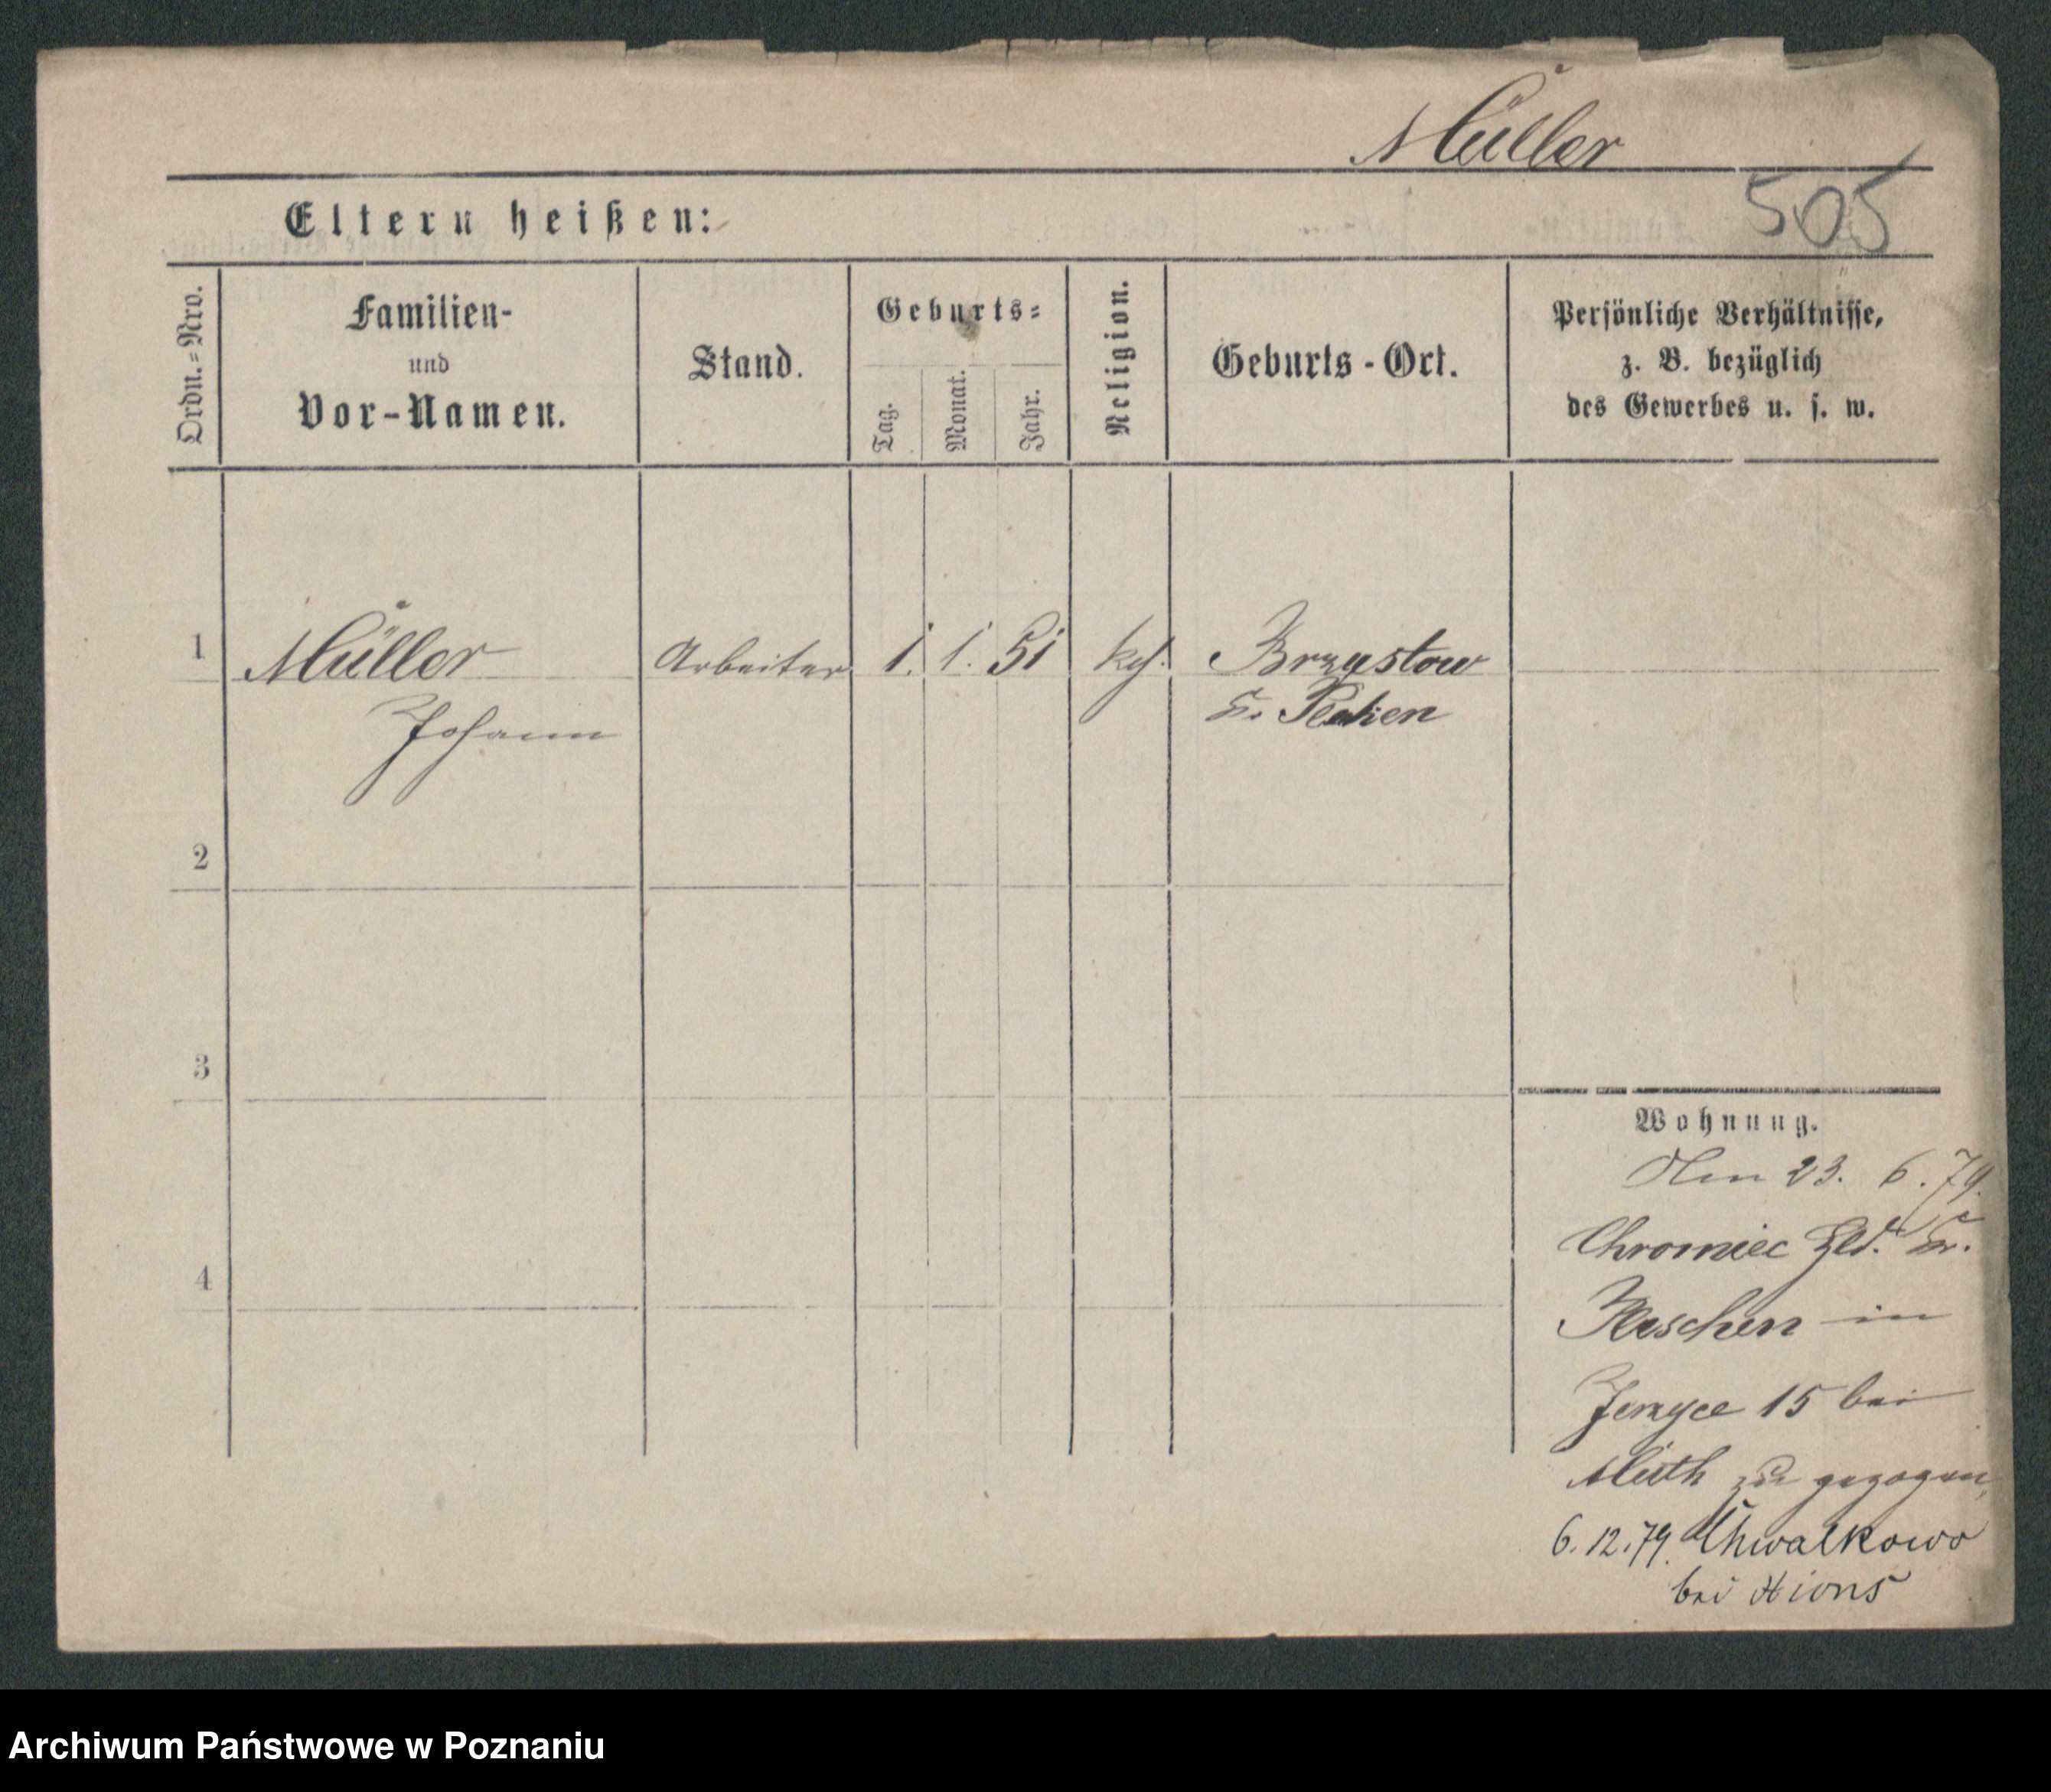 Müller
505
Eltern heißen:
Ordn.=Nro.
Familien-
und
Vor-Namen.
Stand.
Geburts=
Tag.
Monat.
Jahr.
Religion.
Geburts-Ort.
Persönliche Verhältnisse,
z. B. bezüglich
des Gewerbes u. s. w.
1 Müller Arbeiter 1. 1. 51 kth. Brzustow
Johann Kr.
2
3
4
Wohnung.
Am 23. 6. 79.
Chromiec Hld. Kr.
Pleschen in
Jerzyce 15 bei
zu gezogen,
6.12.79. Chwalkowo
bei Xions
Archiwum Państwowe w Poznaniu